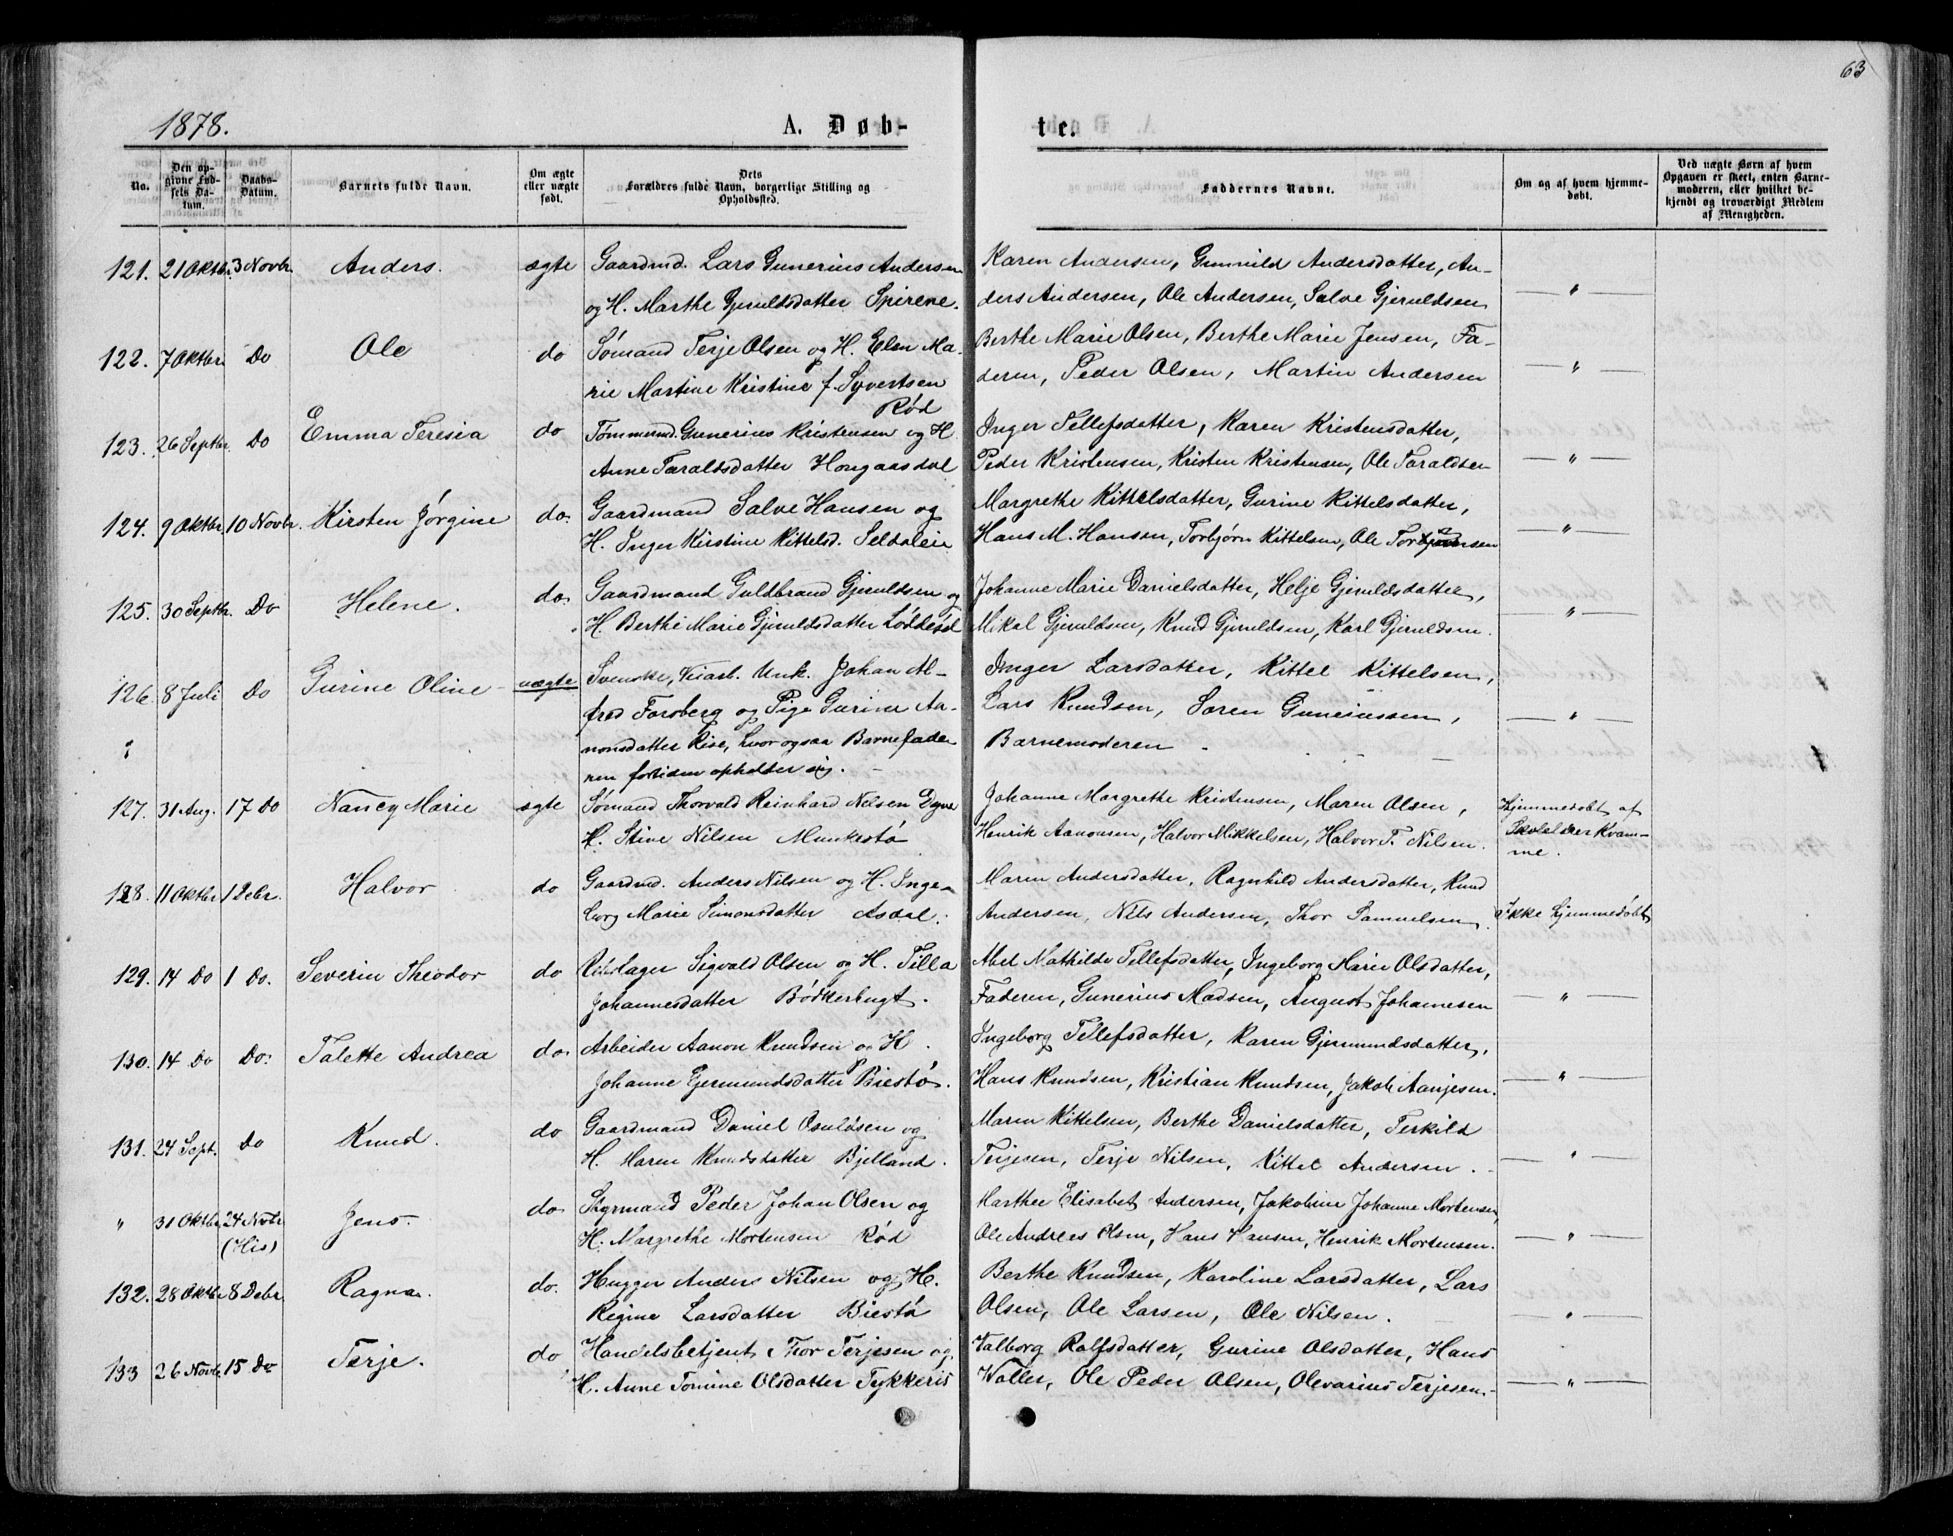 63
1878.
A. Døb-
te.
No.
Den op-
givne Fød-
sels Da-
tum.
Daabs-
Datum.
Barnets fulde Navn.
Om ægte
eller uægte
født.
Dets
Forældres fulde Navn, borgerlige Stilling og
Opholdssted.
Faddernes Navne.
Om og af hvem hjemme-
døbt.
Ved uægte Børn af hvem
Opgaven er skeet, enten Barne-
moderen, eller hvilket be-
kjendt og troværdigt Medlem
af Menigheden.
121. 21 Oktbr. 3 Novbr. Anders. ægte Gaardmd. Lars Gunerius Andersen
og H. Marthe Gjeruldsdatter Spirene.
Karen Andersen, Gunnild Andersdatter, An-
ders Andersen, Ole Andersen, Salve Gjeruldsen — " —
122. 7 Oktbr. Do Ole do Sømand Terje Olsen og H. Elen Ma-
rie Martine Kristine f. Syvertsen
Rød
Berthe Marie Olsen, Berthe Marie Jensen, Fa-
deren, Peder Olsen, Martin Andersen — " —
123. 26 Septbr. Do Emma Teresia do Tømmermd. Gunerius Kristensen og H.
Anne Taraldsdatter Hougaasdal
Inger Tellefsdatter, Karen Kristensdatter,
Peder Kristensen, Kristen Kristensen, Ole Taraldsen — " —
124. 9 Oktbr. 10 Novbr. Kirsten Jörgine do. Gaardmand Salve Hansen og
H. Inger Kirstine Kittelsd. Seldalen
Margrethe Kittelsdatter, Gurine Kittelsdatter,
Hans M. Hansen, Torbjørn Kittelsen, Ole — " —
125. 30 Septbr. Do Helene. do. Gaardmand Guldbrand Gjeruldsen og
H. Berthe Marie Gjeruldsdatter Løddesøl
Johanne Marie Danielsdatter, Helje Gjeruldsdatter,
Mikal Gjeruldsen, Knud Gjeruldsen, Karl Gjeruldsen. — " —
126 8 Juli Do Gurine Oline - uægte Svenske, Veiarb. Unk. Johan Al-
fred Forsberg og Pige Gurine Aa-
nonsdatter Rise, hvor ogsaa Barnefade-
ren fortiden opholder sig.
Inger Larsdatter, Kittel Kittelsen,
Lars Knudsen, Søren Gunerussen,
Barnemoderen — " —
127. 31 Aug. 17 Do Nancy Marie ægte Sømand Thorvald Reinhard Nilsen Dyve
H. Stine Nilsen Munkestø
Johanne Margrethe Kristensen, Maren Olsen,
Henrik Aanonsen, Halvor Mikkelsen, Halvor T. Nilsen.
Hjemmedøbt af
Skoleholder Kvam-
me.
128. 11 Oktbr 1 Debr. Halvor do Gaardmd. Anders Nilsen og H. Inge-
borg Marie Simonsdatter Asdal.
Maren Andersdatter, Ragnhild Andersdatter, Knud
Andersen, Nils Andersen, Thor Samuelsen. Ikke hjemmedøbt
129. 14 Do 1 Do. Severin Theodor do Sigvald Olsen og H. Tilla
Johannesdatter Bødkerbugt.
Abel Mathilde Tellefsdatter, Ingeborg Marie Olsdatter,
Faderen, Gunerius Madsen, August Johannesen — " —
130. 14 Do Do. Talette Andrea do. Arbeider Aanon Knudsen og H.
Johanne Gjermundsdatter Biestø.
Ingeborg Tellefsdatter, Karen Gjermundsdatter,
Hans Knudsen, Kristian Knudsen, Jakob Aanjesen. — " —
131. 24 Sept. Do Knud. do Gaardmand Daniel Osuldsen og
H. Maren Knudsdatter Bjelland.
Maren Kittelsen, Berthe Danielsdatter, Terkild
Terjesen, Terje Nilsen, Kittel Andersen. — " —
" 31 Oktbr 24 Novbr
(His) Jens. do Styrmand Peder Johan Olsen og
H. Margrethe Mortensen Rød
Marthee Elisabet Andersen, Jakobine Johanne Mortensen,
Ole Andreas Olsen, Hans Hansen, Henrik Mortensen. — " —
132. 28 Oktbr 8 Debr. Ragna. do. Hugger Anders Nilsen og H.
Regine Larsdatter Biestø
Berthe Knudsen, Karoline Larsdatter, Lars
Olsen, Ole Larsen, Ole Nilsen. — " —
133 26 Novbr. 15 Do Terje. do Handelsbetjent Thor Terjesen og
H. Anne Tomine Olsdatter Tykkeris
Valborg Rolfsdatter, Gurine Olsdatter, Hans
Waller, Ole Peder Olsen, Olevarius Terjesen. — " —